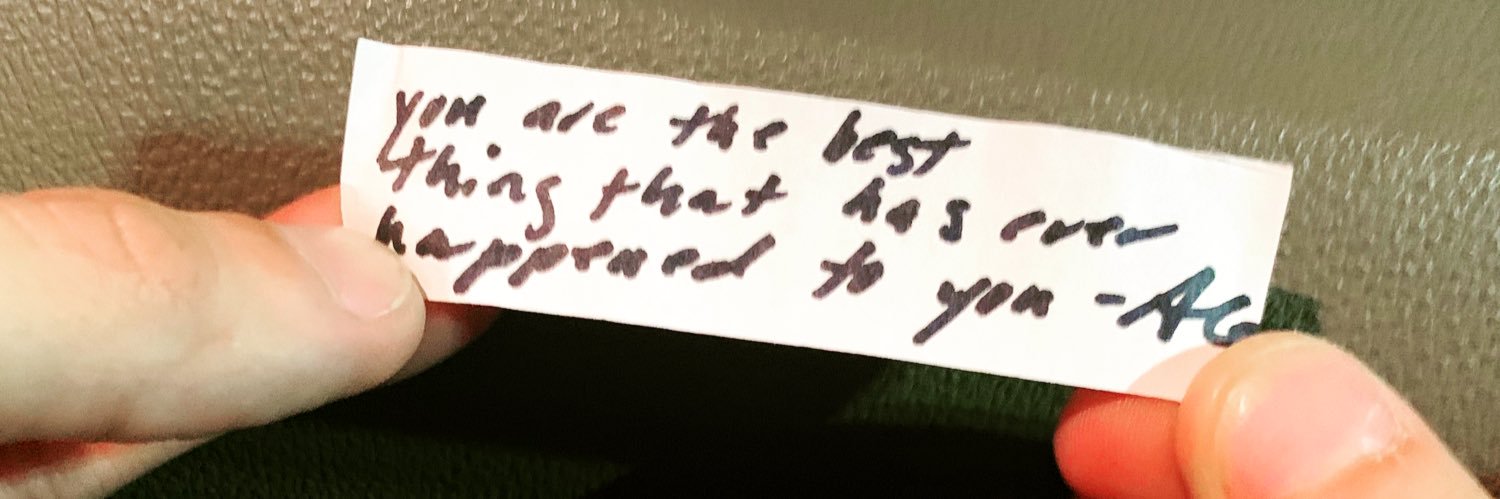 you are the best
thing that has ever
happened to you -AG